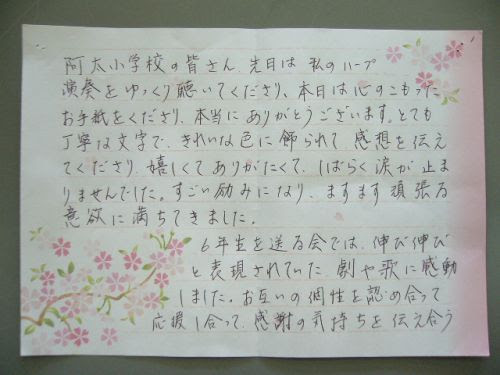 阿太小学校の皆さん、先日は 私のハープ
演奏をゆっくり聴いてくださり、本日は心のこもった
お手紙をくださり、本当にありがとうございます。とても
丁寧な文字で、きれいな色に飾られて 感想を伝え
てくださり、嬉しくてありがたくて、しばらく涙が止ま
りませんでした。すごい励みになり、ますます頑張る
意欲に満ちてきました。
6年生を送る会では、伸び伸び
と表現されていた、劇や歌に感動
しました。お互いの個性を認め合って
応援し合って、感謝の気持ちを伝え合う